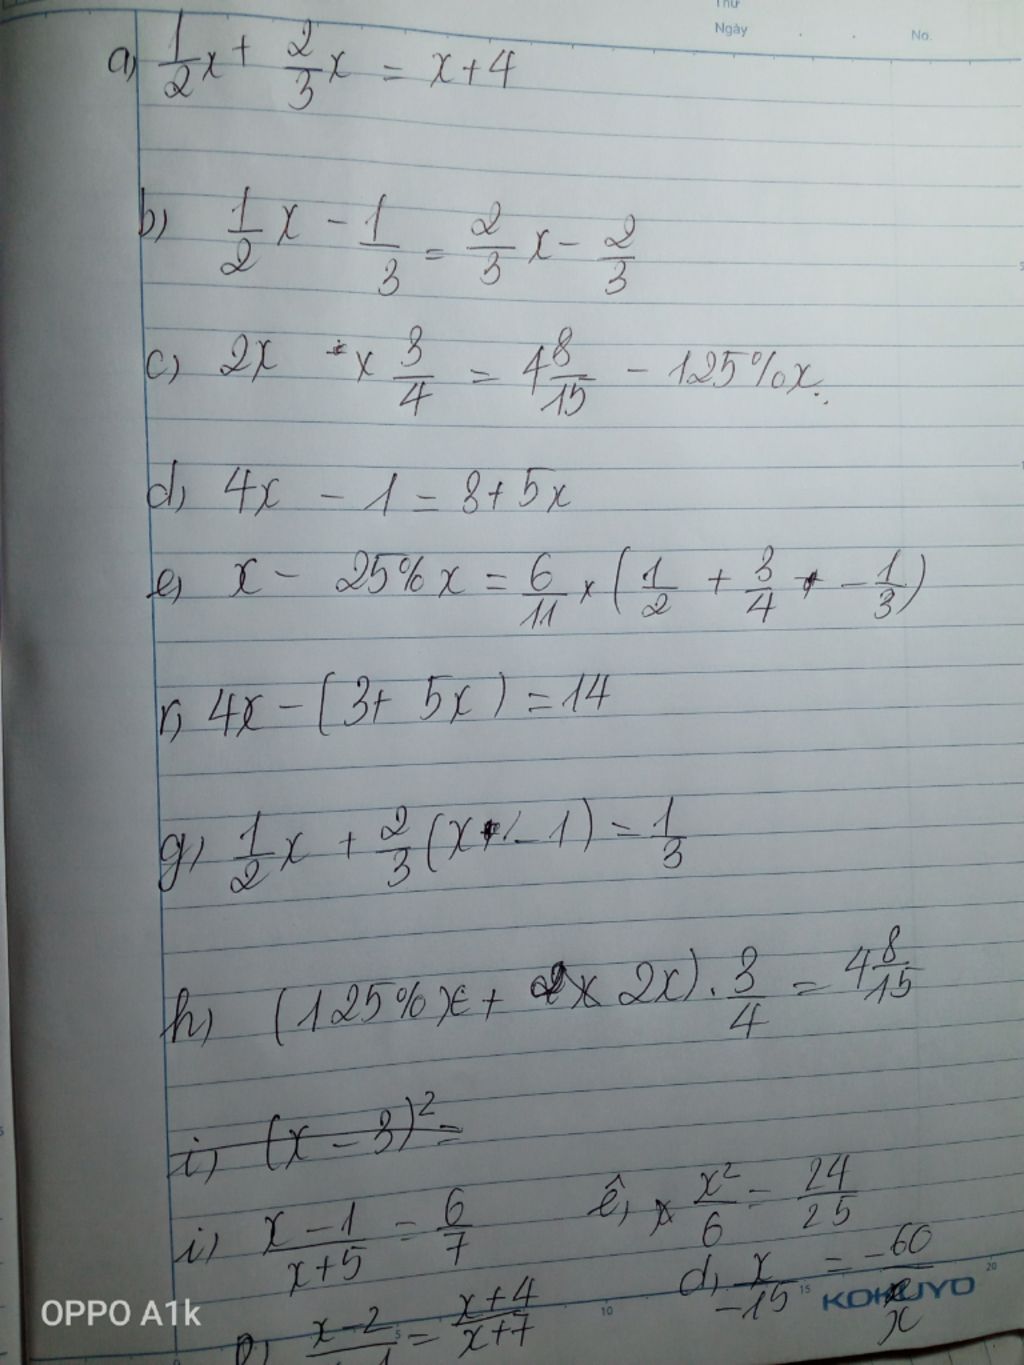 Thứ
Ngày No.
a) 1/2 x + 2/3 x = x + 4
b) 1/2 x - 1/3 = 2/3 x - 2/3
c) 2x × 3/4 = 4 8/15 - 125% x
d) 4x - 1 = 3 + 5x
e) x - 25% x = 6/11 × (1/2 + 3/4 - 1/3)
r) 4x - (3 + 5x) = 14
g) 1/2 x + 2/3 (x - 1) = 1/3
h) (125% x + 2x) . 3/4 = 4 8/15
i) (x - 3)² =
i) (x - 1)/(x + 5) = 6/7 ê) x²/6 = 24/25
d) x/-15 = -60/x
KOKUYO
(x - 2)/ = (x + 4)/(x + 7)
5 10 15 20
OPPO A1k